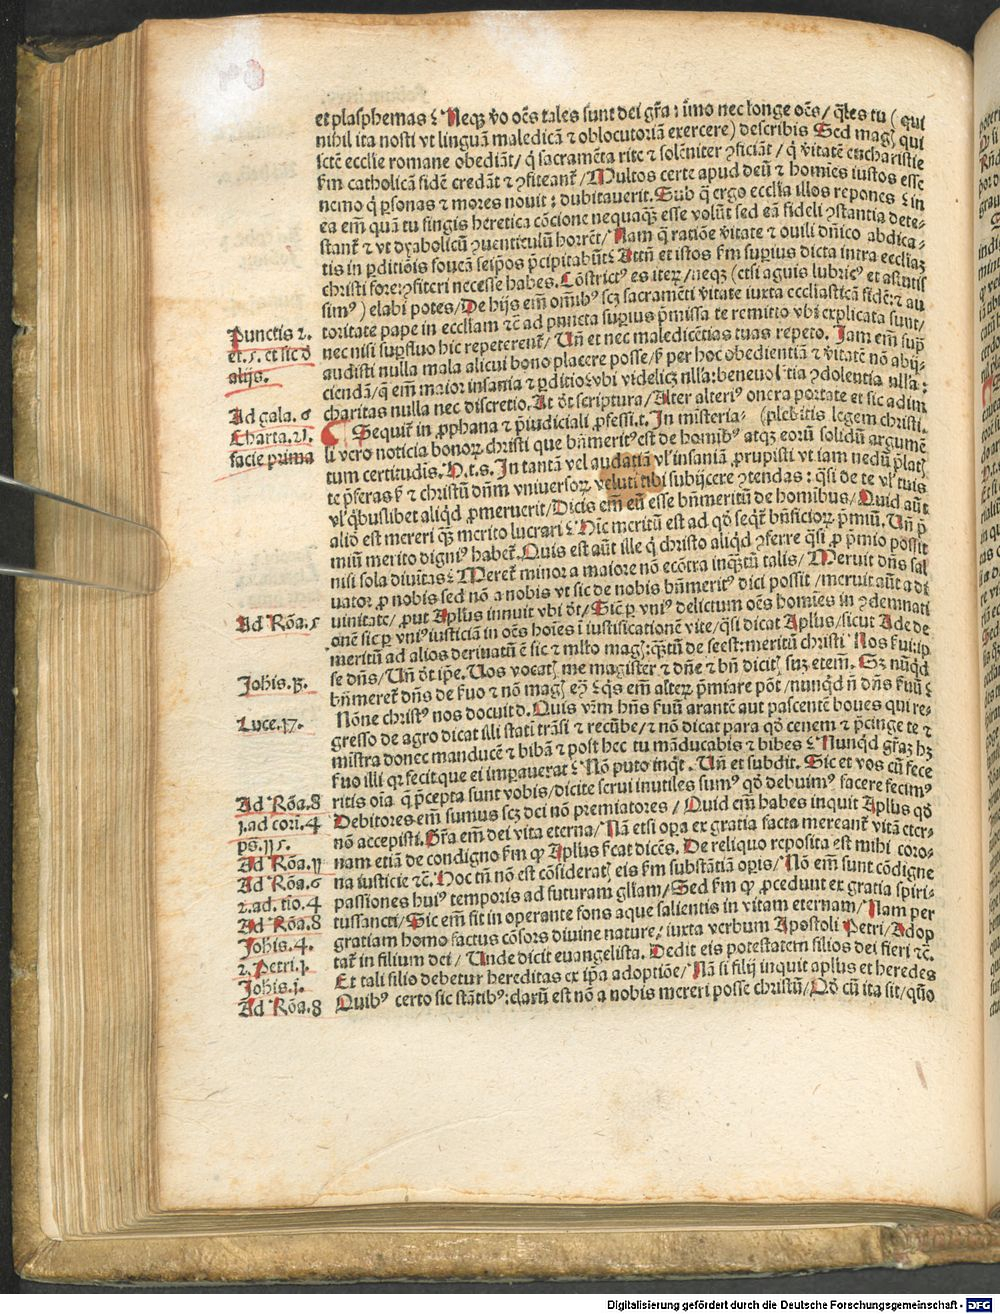 et plasphemas ⁊ Neqꝫ vo oēs tales sunt dei gr̄a : īmo nec longe oēs / q̄les tu ( qui
nihil ita nosti vt linguā maledicā ⁊ oblocutoriā exercere ) describis Sed magꝭ qui
sctē ecclie romane obediāt / q̄ sacramēta rite ⁊ solēniter ꝯficiāt / q̄ vitatē eucharistie
ẜm catholicā fidē credāt ⁊ ꝯfiteant᷑ / Multos certe apud deū ⁊ homīes iustos esse
nemo q̄ ꝑsonas ⁊ mores nouit : dubitauerit. Sub q̄ ergo ecclīa illos repones ⁊ in
ea em̄ quā tu fingis heretica cōcione nequaqꝫ esse volūt sed eā fideli ꝯstantia dete-
stant᷑ ⁊ vt dyabolicū ꝯuenticulū horrēt / Nam q̄ ratiōe vitate ⁊ ouili dn̄ico abdica-
tis in ꝑditiōis foueā seip̄os p̄cipitabūt Attn̄ et istos ẜm suꝑius dicta intra eccliaꝫ
christi fore : ꝯfiteri necesse habes. Cōstrict᷒ es iteꝝ / neqꝫ ( etsi aguis lubric᷒ et astutis
sim᷒ ) elabi potes / De hijs em̄ oīmb᷒ scꝫ sacramēti vitate iuxta eccliasticā fidē : ⁊ au
Punctis 2. toritate pape in eccliam ⁊c̄ ad puncta suꝑius p̄missa te remitto vbi explicata sunt /
et .5. et sic d nec nisi suꝑfluo hic repeterent᷑ / Un̄ et nec maledicētias tuas repeto. Jam em̄ suꝑ
alijs. audisti nulla mala alicui bono placere posse / ẜ per hoc obedientiā ⁊ vitatē nō abij-
ciendā / q̄ em̄ maior insania ⁊ ꝑditio vbi videlicꝫ nlla : beneuolētia ꝯdolentia nlla :
Ad gala. 6 charitas nulla nec discretio. At ōt scriptura / Alter alteri᷒ onera portate et sic adim
Charta. 21. Sequit᷑ in ꝓphana ⁊ p̄iudiciali ꝓfessi. t. In misteria- (plebitis legem christi.
facie prima li vero noticia bonoꝝ christi que bn̄merit᷒ est de homib᷒ atqꝫ eorū solidū argumē
tum certitudis. P. t. s. In tantā vel audatiā vl' insaniā ꝓrupisti vt iam nedū p̄latꝭ
te p̄feras ẜ ⁊ christū dn̄m vniuersoꝝ veluti tibi subijcere ꝯtendas : q̄si de te vl' tuis
vl' q̄buslibet aliqd ꝓmeruerit / Dicis em̄ eū esse bn̄meritū de homibus / Quid aūt
aliō est mereri qꝫ merito lucrari ⁊ Hic meritū est ad qō seqt᷑ bn̄ficioꝝ p̄miū. Un̄ p̄
miū merito digni᷒ habet᷑. Quis est aūt ille q̄ christo aliqd ꝯferre q̄si ꝓ p̄mio possit
nisi sola diuitas Meret᷑ minor a maiore nō ecōtra inqꝫtū talis / Meruit dn̄s sal
uator ꝓ nobis sed nō a nobis vt sic de nobis bn̄merit᷒ dici possit / meruit aūt a di
Ad Rōa. 5 uinitate / ꝓut Aplus innuit vbi ōt / Sic ꝑ vni᷒ delictum oēs homīes in ꝯdemnati
onē sic ꝑ vni᷒ iusticiā in oēs hoīes ī iustificationē vite / q̄si dicat Aplus / sicut Ade de
meritū ad alios deriuatū ē sic ⁊ mlto magꝭ : qꝫtū de se est : meritū christi Nos ẜui : ip
Johis. 13. se dn̄s / Un̄ ōt ip̄e. Uos vocatꝭ me magister ⁊ dn̄e ⁊ bn̄ dicitꝭ suꝫ etem̄. Sꝫ nūqd
bn̄meret᷑ dn̄s de ẜuo ⁊ nō magꝭ eꝯ ⁊ qs em̄ alteꝝ p̄miare pōt / nunqd n̄ dn̄s ẜuū ⁊
Luce. 17. Nōne christ᷒ nos docuit d. Quis vr̄m hn̄s ẜuū arantē aut pascentē boues qui re-
gresso de agro dicat illi statī trāsi ⁊ recūbe / ⁊ nō dicat para qō cenem ⁊ p̄cinge te ⁊
mistra donec manducē ⁊ bibā ⁊ post hec tu māducabis ⁊ bibes ⁊ Nunqd gr̄aꝫ hꝫ
ẜuo illi qꝛ fecit que ei imꝑauerat ⁊ Nō puto inqt. Un̄ et subdit. Sic et vos cū fece
Ad Rōa. 8 ritis oīa q̄ p̄cepta sunt vobis / dicite serui inutiles sum᷒ qō debuim᷒ facere fecim᷒
1. ad cori. 4 Debitores em̄ sumus scꝫ dei nō premiatores / Quid em̄ habes inquit Aplus qō
ps. 115. nō accepisti. Gr̄a em̄ dei vita eterna / Nā etsi oꝑa ex gratia facta mereant᷑ vitā eter-
Ad Rōa. 11 nam etiā de condigno ẜm qꝙ Aplus ẜcat dicēs. De reliquo reposita est mihi coro-
Ad Rōa. 6 na iusticie ⁊c̄. Hoc tn̄ nō est cōsideratꝭ eis ẜm substātiā oꝑis / Nō em̄ sunt cōdigne
2. ad. tio. 4 passiones hui᷒ temporis ad futuram gliam / Sed ẜm qꝙ ꝓcedunt ex gratia spiri-
Ad Rōa. 8 tussancti / Sic em̄ fit in operante fons aque salientis in vitam eternam / Nam per
Johis. 4. gratiam homo factus cōsors diuine nature / iuxta verbum Apostoli Petri / Adop
2. Petri. 1. tat᷑ in filium dei / Unde dicit euangelista. Dedit eis potestatem filios dei fieri ⁊c̄.
Johis. 1. Et tali filio debetur hereditas et ip̄a adoptiōe / Nā si filij inquit aplus et heredes
Ad Rōa. 8 Quib᷒ certo sic stātib᷒ : clarū est nō a nobis mereri posse christū / Qō cū ita sit / quō
Digitalisierung gefördert durch die Deutsche Forschungsgemeinschaft - DFG